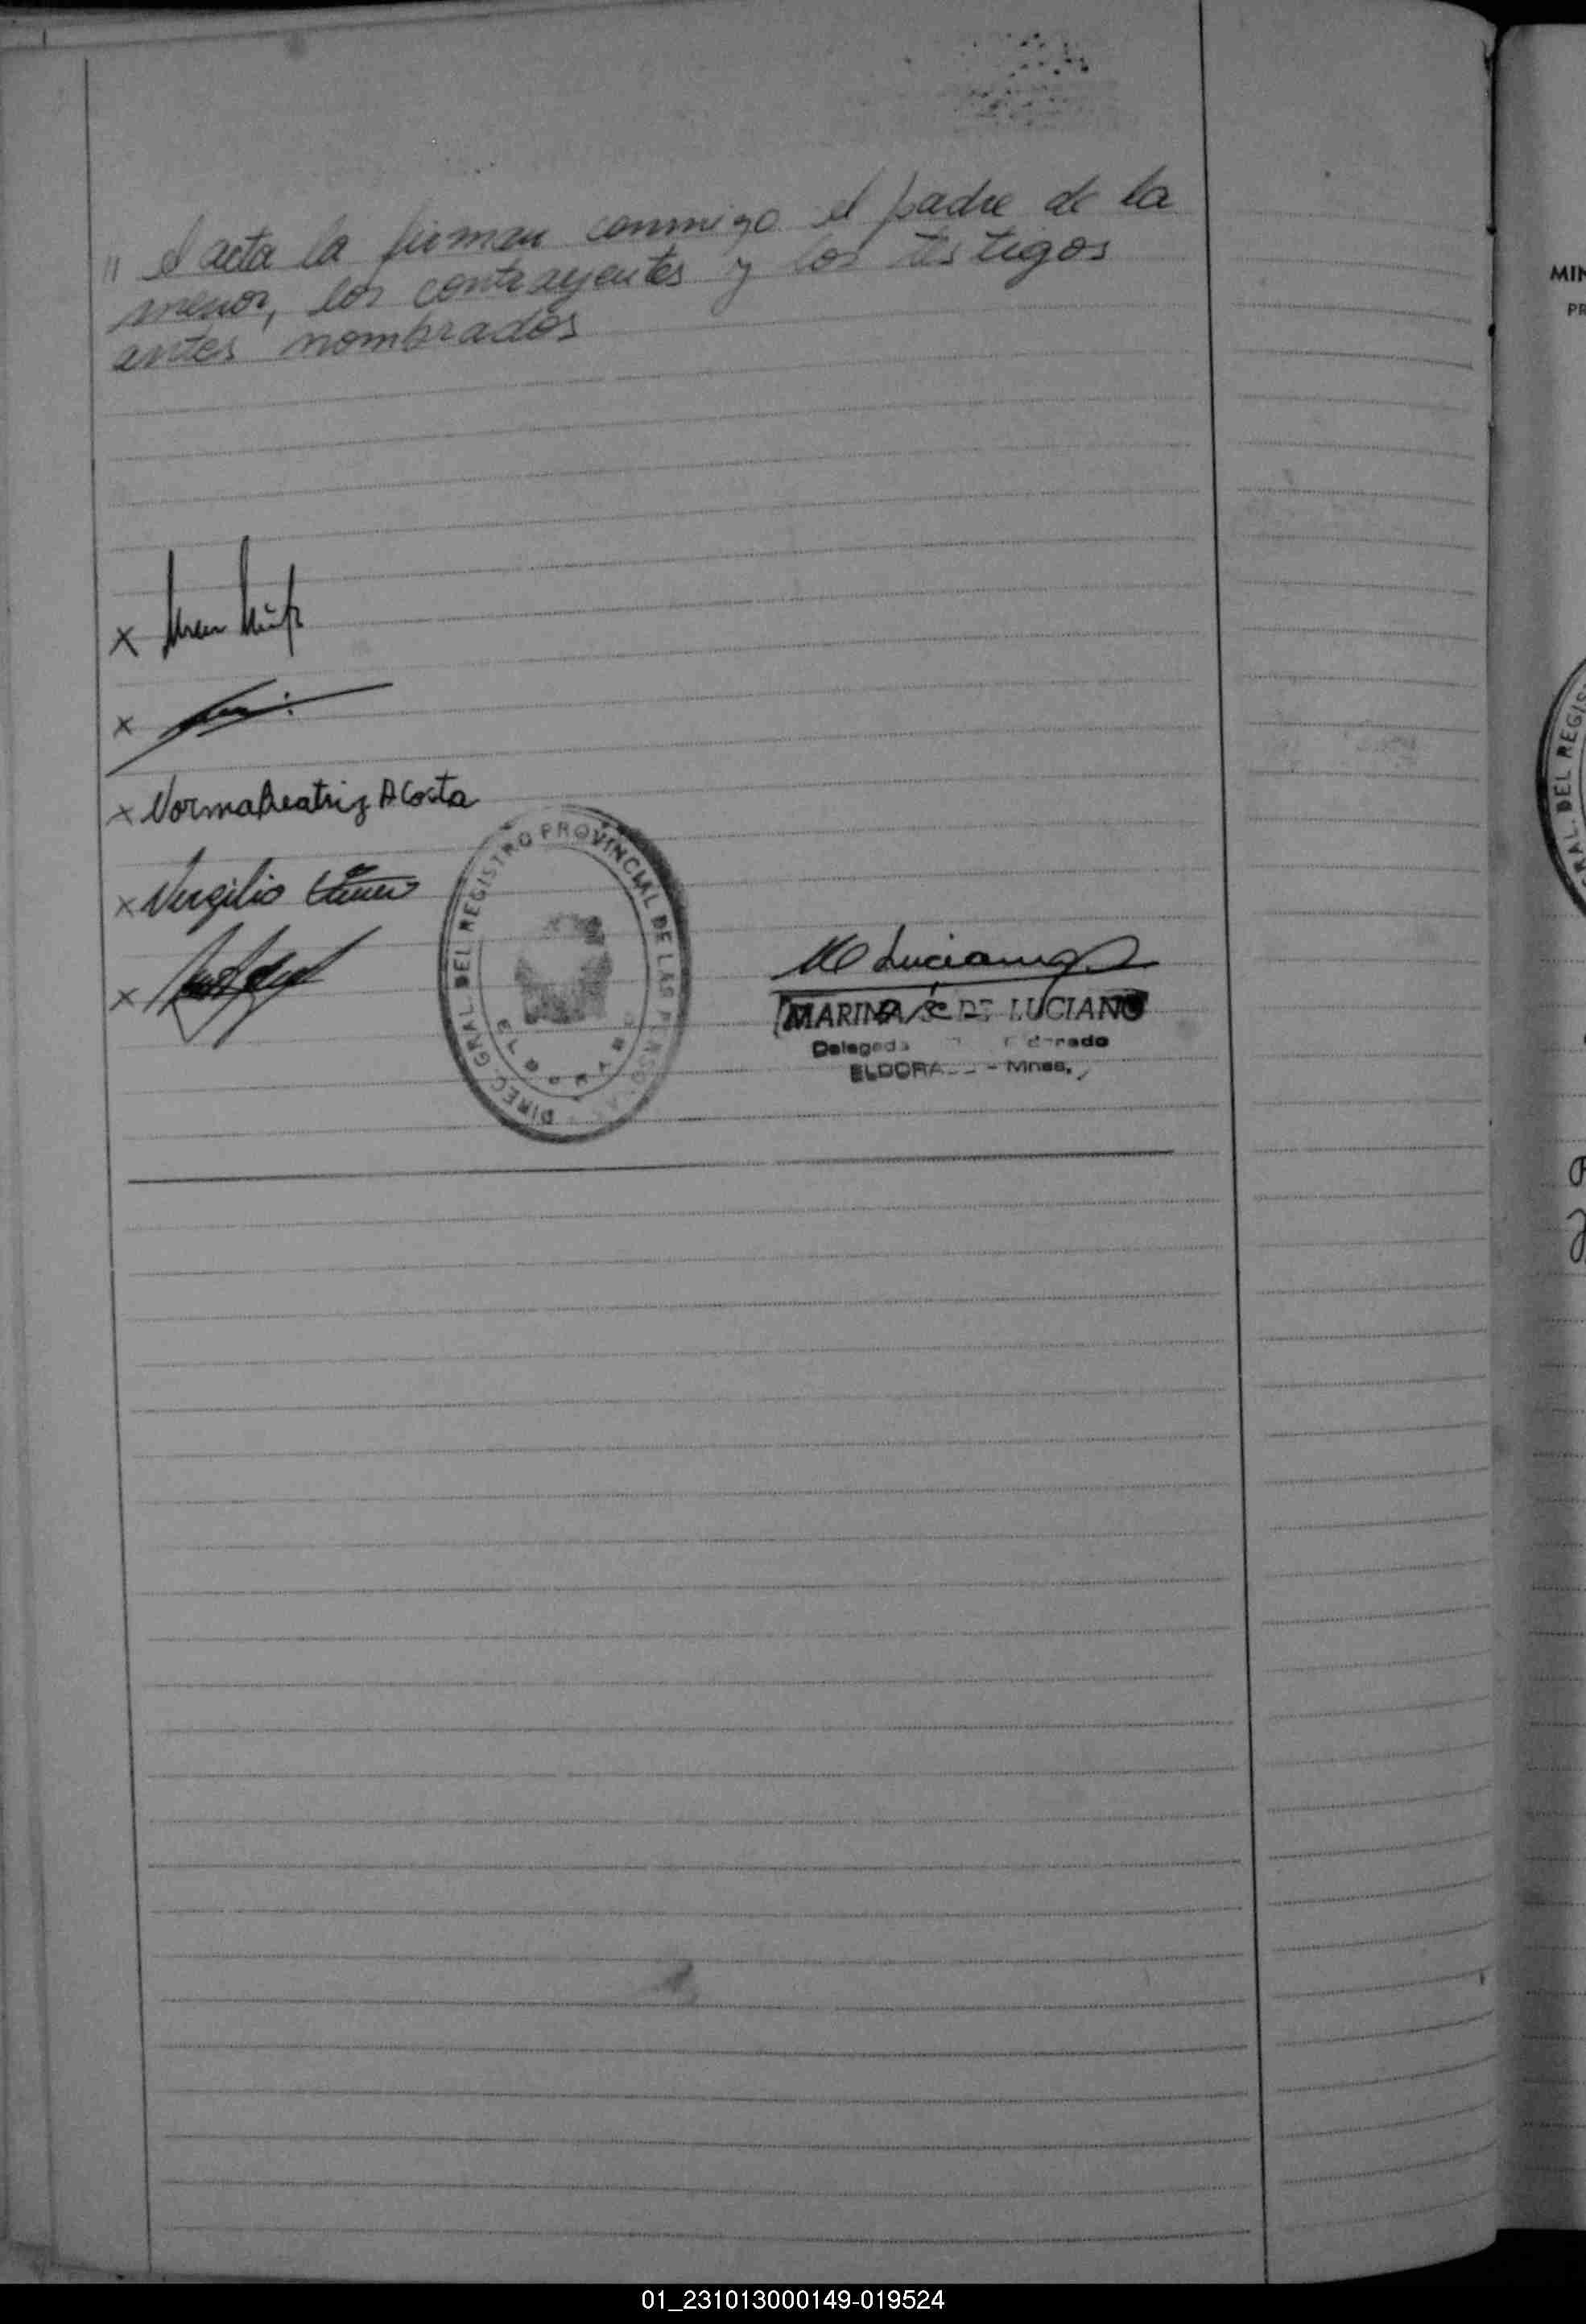 " el acta la firman conmigo el padre de la
menor, los contrayentes y los testigos
antes nombrados
x
x
x Norma Beatriz Acosta
x Virgilio
x
DIREC. GRAL. DEL REGISTRO PROVINCIAL DE LAS PERSONAS
ELDORADO
M Luciano
MARINA S. DE LUCIANO
Delegada
ELDORA - Mnes.
MIN
PR
RAL. DEL REGIS
01_231013000149-019524